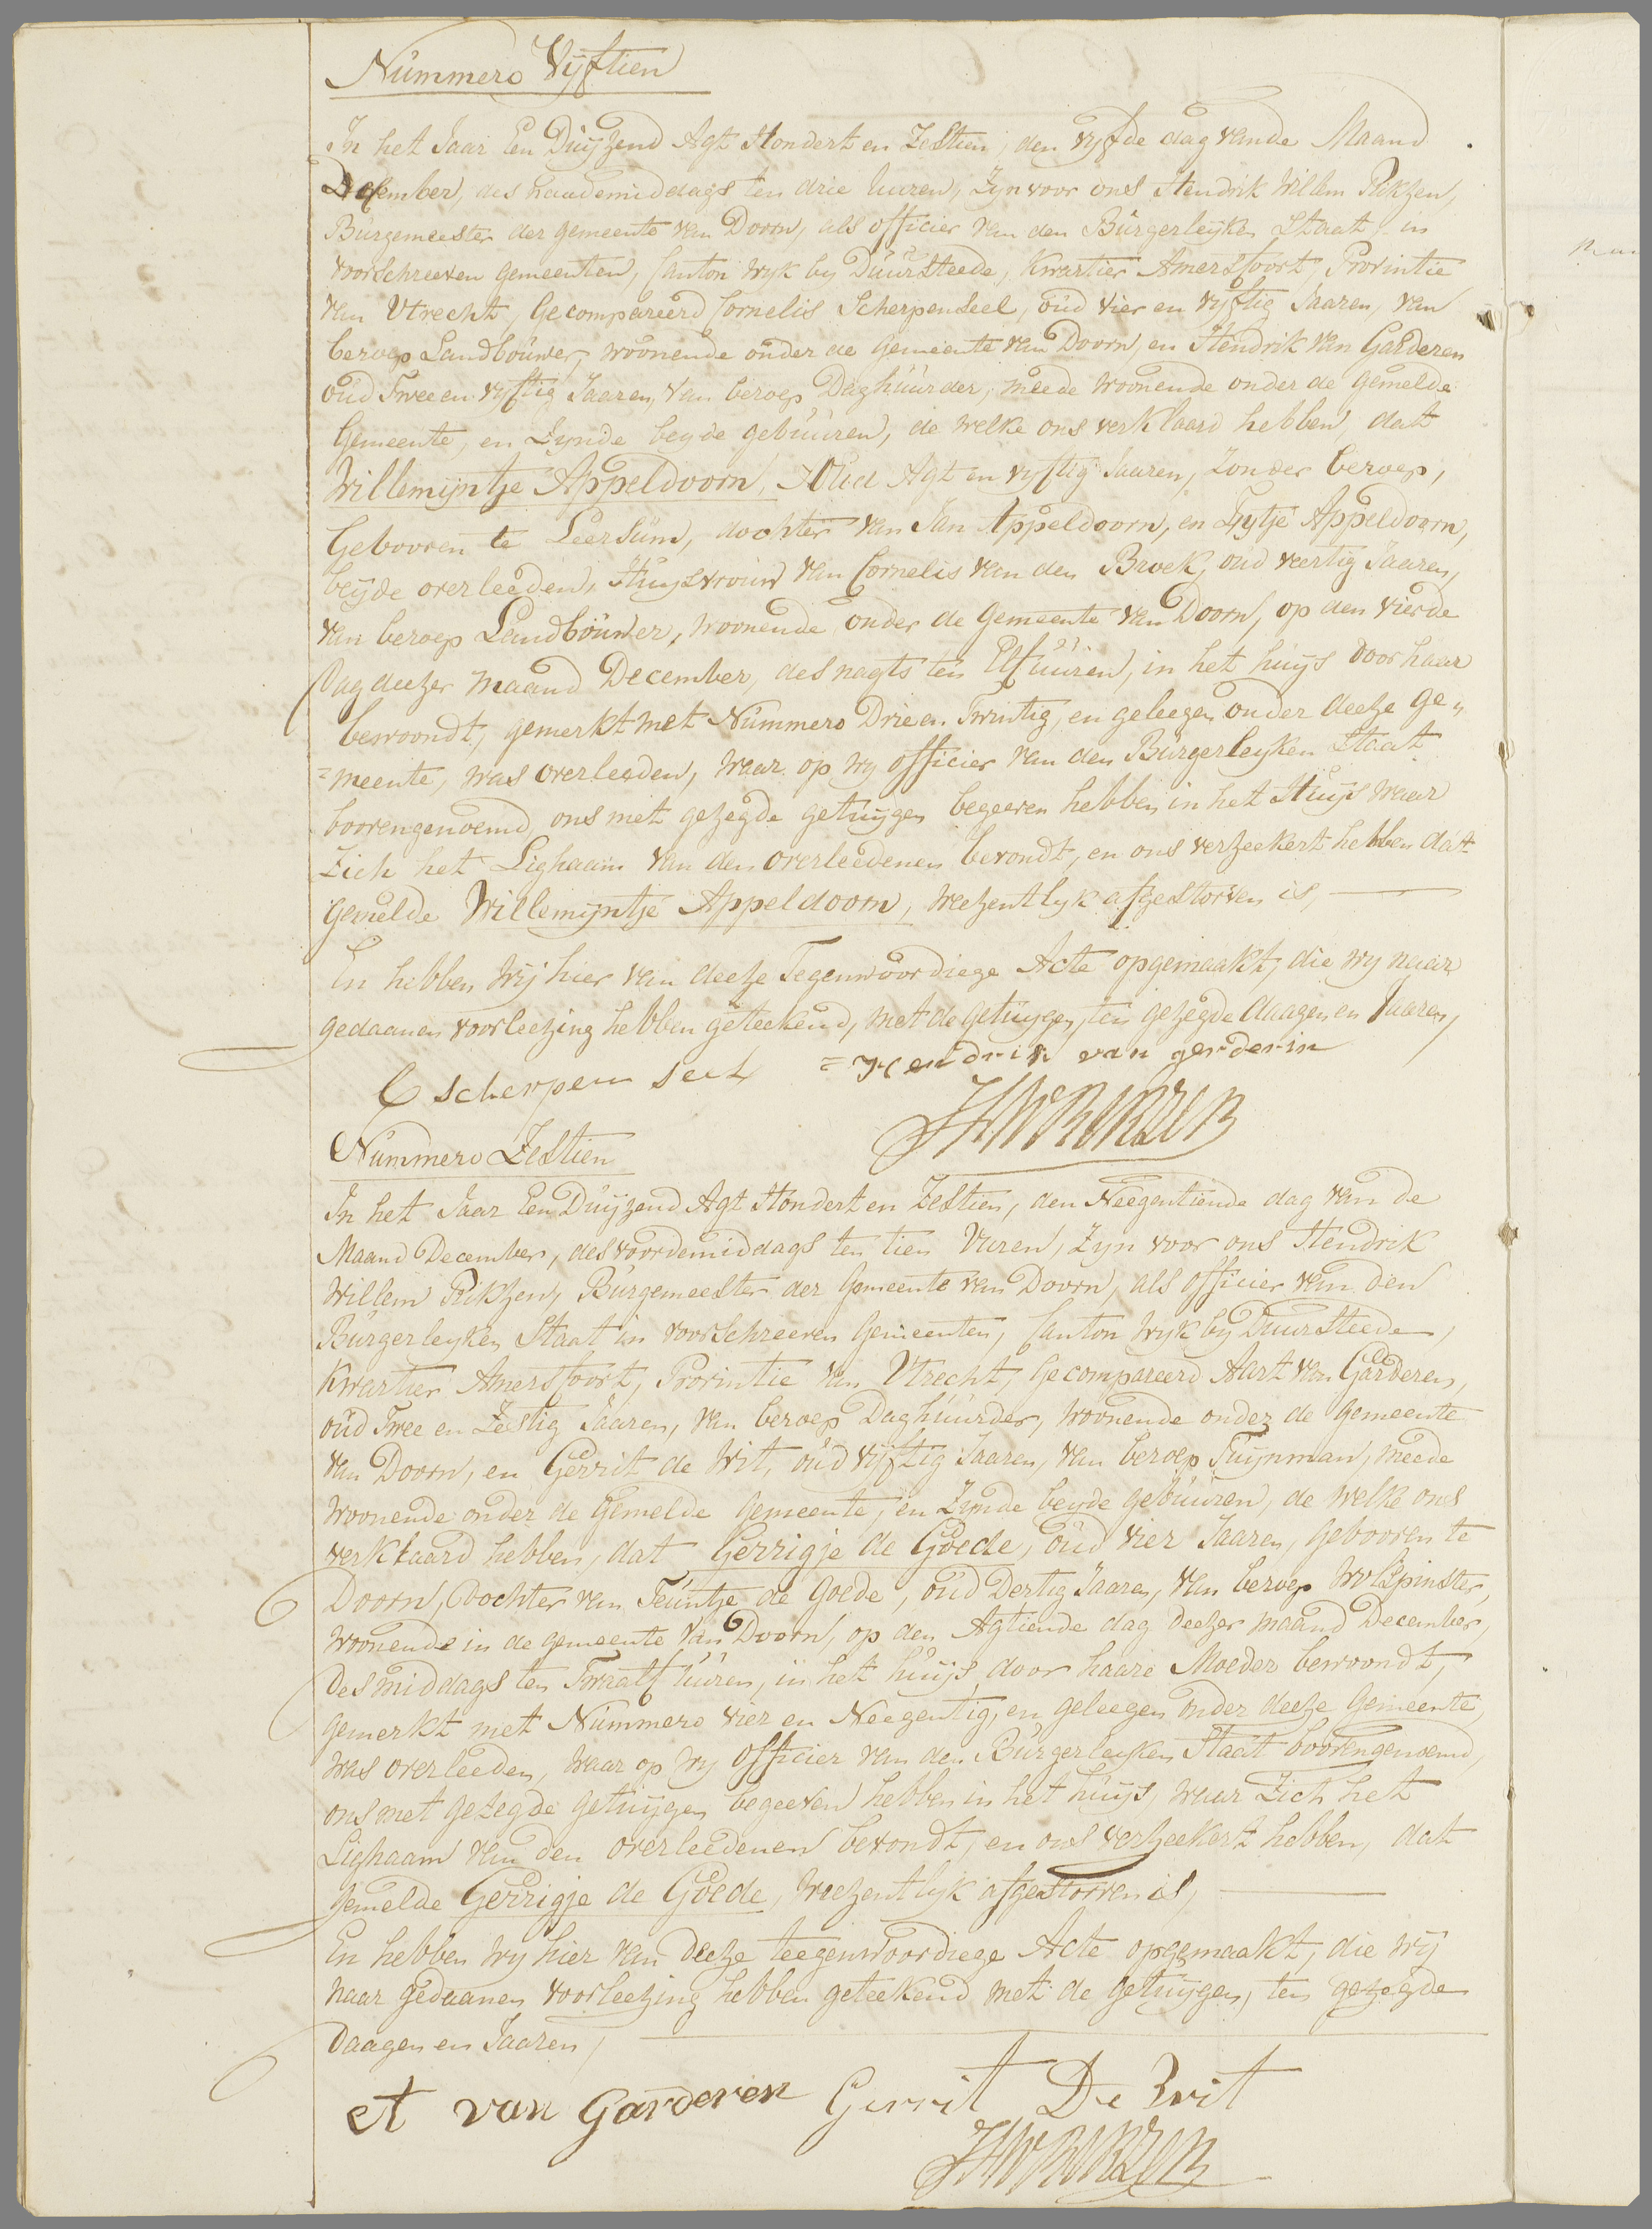 Nummero Vijftien
In het Jaar Een Duijzend Agt Hondert en Zestien, den vyfde dag vande Maand
December, des naademiddags ten drie Uuren, Zyn voor ons Hendrik Willem Rikzen,
Burgemeester der gemeente van Doorn, als officier van den Burgerleyken Staat in
voorschreeven gemeenten, Canton Wyk by Duursteede, Kwartier Amersfoort, Provintie
van Utrecht, Gecompareerd Cornelis Scherpenseel, oud vier en vyftig Jaaren, van
beroep Landbouwer, woonende onder de gemeente van Doorn, en Hendrik van Garderen
oud Twee en vyftig Jaaren, van beroep Daghuurder, meede woonende onder de gemelde
Gemeente, en Zynde beyde gebuuren, de welke ons verklaard hebben, dat
Willemijntje Appeldoorn, Oud Agt en vyftig Jaaren, Zonder beroep,
Gebooren te Leersum, dochter van Jan Appeldoorn, en Zytje Appeldoorn,
beyde overleeden, Huysvrouw van Cornelis van den Broek, oud veertig Jaaren,
van beroep Landbouwer, woonende onder de gemeente van Doorn, op den vierde
Dag deezer maand December, des nagts ten Elf uuren, in het huys door haar
bewoondt, gemerkt met Nummero Drie en Twintig, en geleegen onder deeze ge„
=meente, was overleeden, waar op wy officier van den Burgerleyken Staat
boovengenoemd, ons met gezegde getuygen begeeven hebben in het Huys waar
Zich het Lighaam van den overleedenen bevondt, en ons verzeekert hebben dat
gemelde Willemijntje Appeldoorn, weezentlyk afgestorven is,
En hebben wij hier van deeze Tegenwoordiege Acte opgemaakt, die wy naar
gedaanen voorleezing hebben geteekend, met de getuygen, ten gezegde daagen en Jaaren,
C scherpen seel = Hendrik van gerderin
HWRIKZEN
Nummero Zestien
In het Jaar Een Duijzend Agt Hondert en Zestien, den Neegentiende dag van de
Maand December, des voordemiddags ten tien Uuren, Zyn voor ons Hendrik
Willem Rikzen, Burgemeester der Gemeente van Doorn, als officier van den
Burgerleyken Staat in voorschreeven Gemeenten, Canton Wyk by Duursteede,
Kwartier Amersfoort, Provintie van Utrecht, Gecompareerd Aart van Garderen,
oud Twee en Zestig Jaaren, van beroep Daghuurder, woonende onder de gemeente
van Doorn, en Gerrit de Wit, oud vijftig Jaaren, van beroep Tuijnman, meede
woonende onder de gemelde gemeente, en Zynde beyde gebuuren, de welke ons
verklaard hebben, dat Gerrigje de Goede, oud vier Jaaren, gebooren te
Doorn, Dochter van Teuntje de Goede, oud Dertig Jaaren, van beroep Wolspinster,
woonende in de gemeente van Doorn, op den Agtiende dag deezer maand December,
des middags ten Twaalf uuren, in het huijs, door haare Moeder bewoondt,
gemerkt met Nummero vier en Neegentig, en geleegen onder deeze Gemeente,
was overleeden, waar op wy officier van den Burgerleyken Staat boovengenoemd,
ons met gezegde getuijgen begeeven hebben in het huijs, waar Zich het
Lighaam van den overleedenen bevondt, en ons verzeekert hebben, dat
gemelde Gerrigje de Goede, weezentlyk afgestorven is,
En hebben wy hier van deeze teegenwoordiege Acte opgemaakt, die wij
naar gedaanen voorleezing hebben geteekend met de getuijgen, ten gezegde
Daagen en Jaaren,
A van Garderen Gerrit De Wit
HWRIKZEN